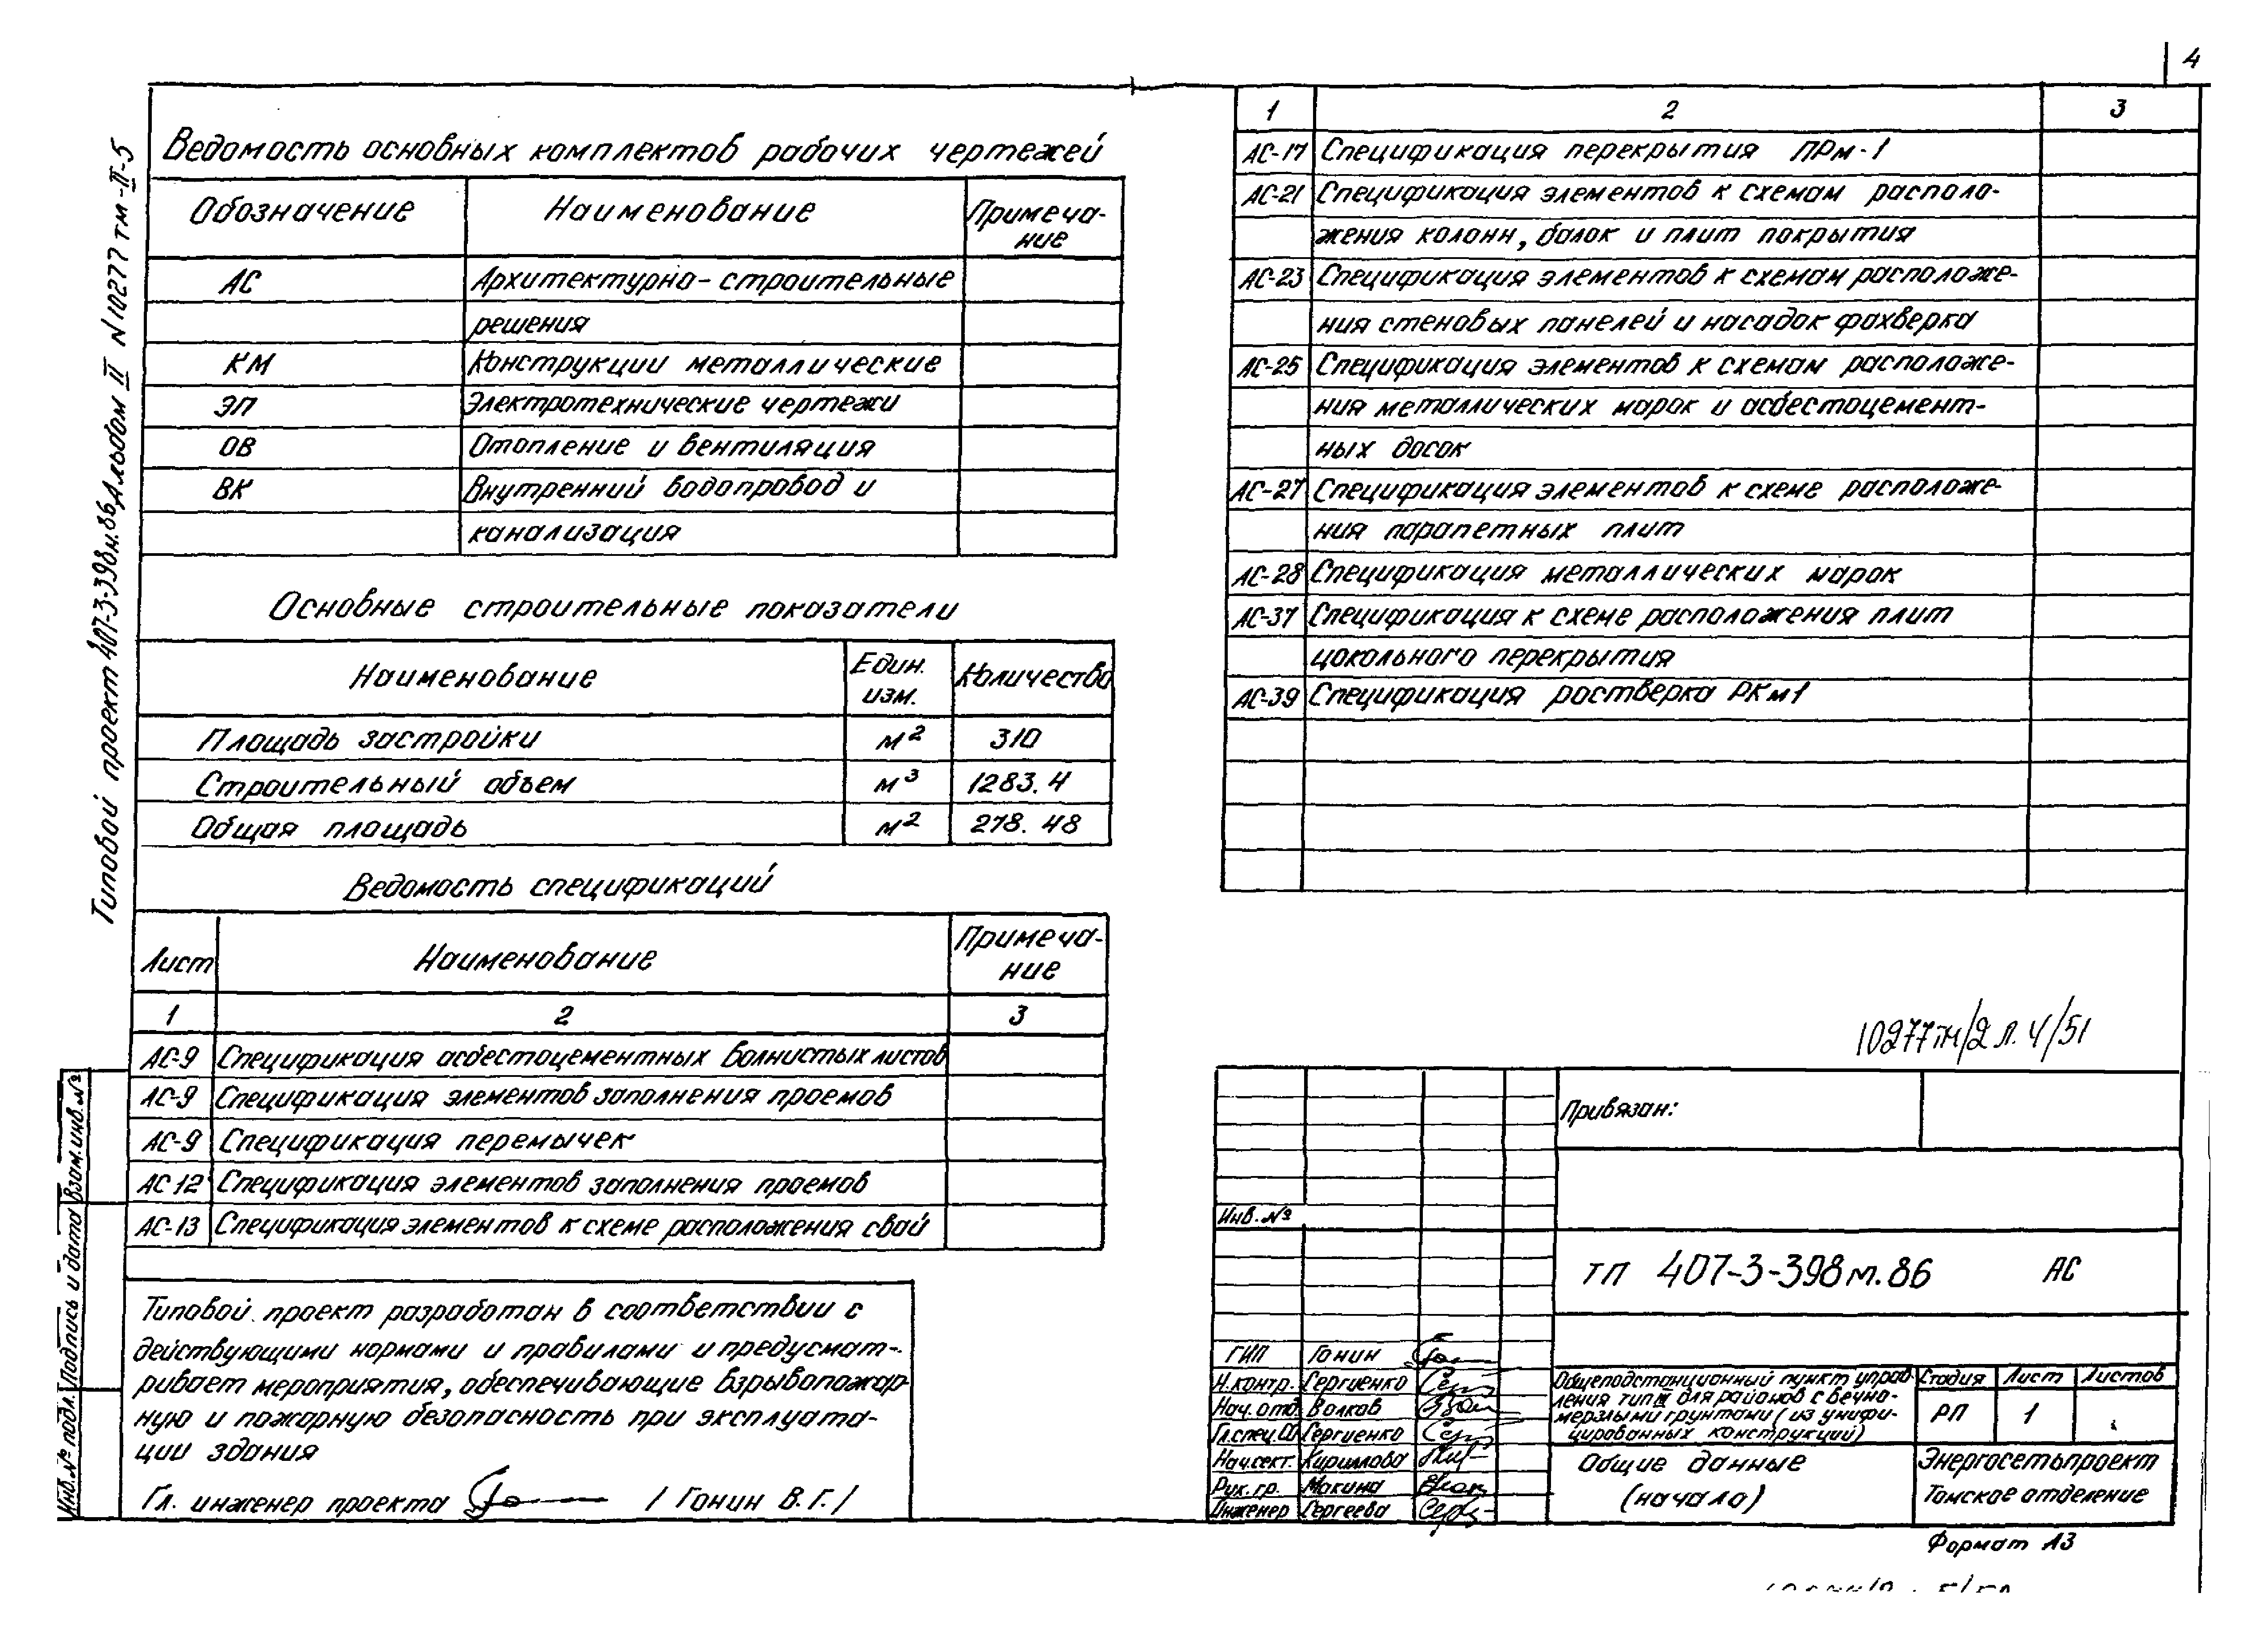 4
Типовой проект 407-3-398м.86 Альбом II N10277 тм-II-5
Ведомость основных комплектов рабочих чертежей
Обозначение Наименование Примеча-
ние
АС Архитектурно-строительные
решения
КМ Конструкции металлические
ЭП Электротехнические чертежи
ОВ Отопление и вентиляция
ВК Внутренний водопровод и
канализация
Основные строительные показатели
Наименование Един. изм. Количество
Площадь застройки м² 310
Строительный объем м³ 1283.4
Общая площадь м² 278.48
Ведомость спецификаций
Лист Наименование Примеча-
ние
1 2 3
АС-9 Спецификация асбестоцементных волнистых листов
АС-9 Спецификация элементов заполнения проемов
АС-9 Спецификация перемычек
АС 12 Спецификация элементов заполнения проемов
АС-13 Спецификация элементов к схеме расположения свай
Типовой проект разработан в соответствии с
действующими нормами и правилами и предусмат-
ривает мероприятия, обеспечивающие взрывопожар-
ную и пожарную безопасность при эксплуата-
ции здания
Гл. инженер проекта / Гонин В.Г./
Инв.№ подл. Подпись и дата Взам.инв.№
1 2 3
АС-17 Спецификация перекрытия ПРм-1
АС-21 Спецификация элементов к схемам располо-
жения колонн, балок и плит покрытия
АС-23 Спецификация элементов к схемам расположе-
ния стеновых панелей и насадок фахверка
АС-25 Спецификация элементов к схемам расположе-
ния металлических марок и асбестоцемент-
ных досок
АС-27 Спецификация элементов к схеме расположе-
ния парапетных плит
АС-28 Спецификация металлических марок
АС-37 Спецификация к схеме расположения плит
цокольного перекрытия
АС-39 Спецификация ростверка РКм1
10277тм/2 л.4/51
Привязан:
Инв.№
ТП 407-3-398м.86 АС
ГИП Гонин
Н.контр. Сергиенко
Нач.отд Волков
Гл.спец. Сергиенко
Нач.сект. Кириллова
Рук.гр. Мокина
Инженер Сергеева
Общеподстанционный пункт управ
ления тип III для районов с вечно-
мерзлыми грунтами (из унифи-
цированных конструкций)
Стадия Лист Листов
РП 1
Общие данные
(начало)
Энергосетьпроект
Томское отделение
Формат А3